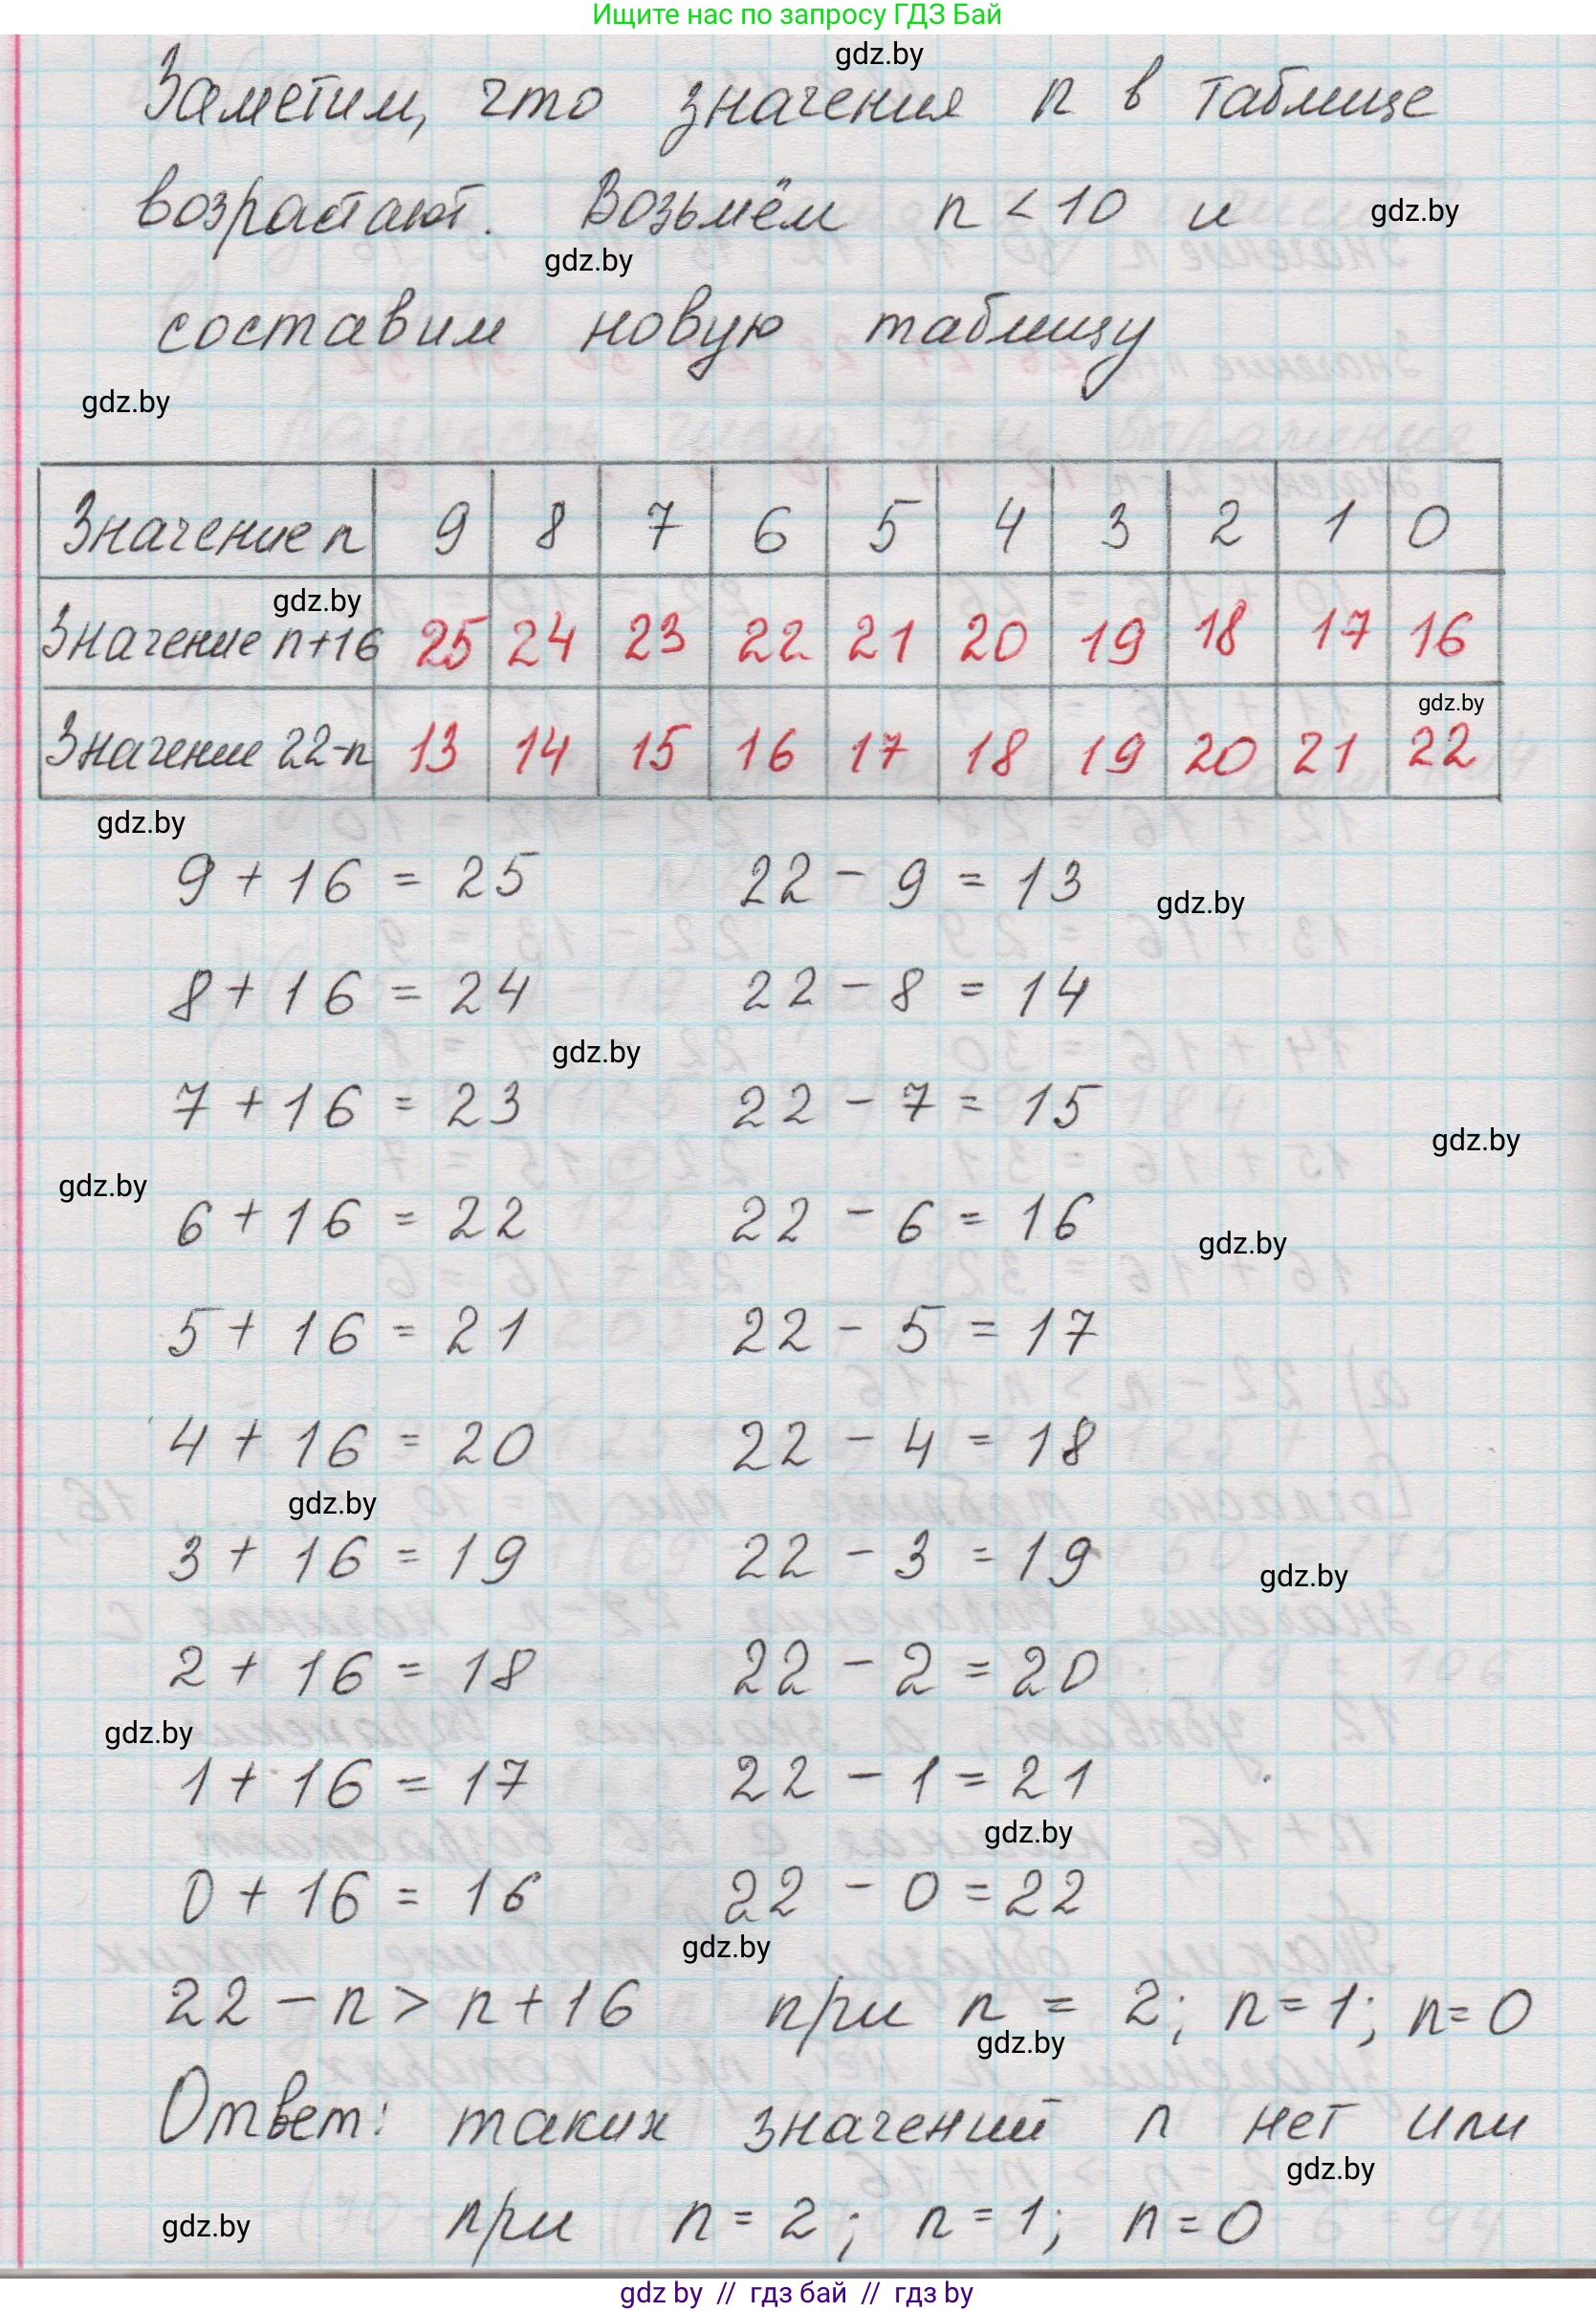 Ищите нас по запросу ГДЗ Бай
gdz.by
Заметим, что значения n в таблице
возрастают. Возьмём n < 10 и
gdz.by
gdz.by
составим новую таблицу
gdz.by
Значение n 9 8 7 6 5 4 3 2 1 0
gdz.by
Значение n+16 25 24 23 22 21 20 19 18 17 16
gdz.by
Значение 22-n 13 14 15 16 17 18 19 20 21 22
gdz.by
9 + 16 = 25 22 - 9 = 13
gdz.by
8 + 16 = 24 22 - 8 = 14
gdz.by
7 + 16 = 23 22 - 7 = 15
gdz.by
gdz.by
6 + 16 = 22 22 - 6 = 16
gdz.by
5 + 16 = 21 22 - 5 = 17
4 + 16 = 20 22 - 4 = 18
gdz.by
3 + 16 = 19 22 - 3 = 19
gdz.by
2 + 16 = 18 22 - 2 = 20
gdz.by
1 + 16 = 17 22 - 1 = 21
gdz.by
0 + 16 = 16 22 - 0 = 22
gdz.by
22 - n > n + 16 при n = 2; n = 1; n = 0
gdz.by
Ответ: таких значений n нет или
gdz.by
при n = 2; n = 1; n = 0
gdz.by
gdz by // гдз бай // гдз by